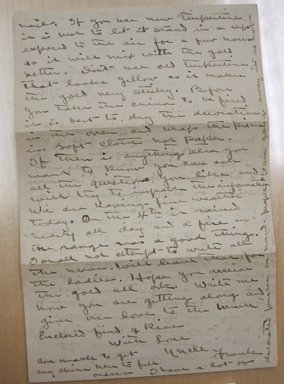 nails. If you use new turpentine
it is best to let it stand in a
exposed to the air for a few hours
as it will mix with the gold
better. Don't use old turpentine
that looks yellow as it makes
the gold very sticky. Before
you take the china to be fired
it is best to dry the decorations
in the oven and wrap the pieces
in soft cloth not paper.
If there is anything else you
want to know you can ask
all the questions you like and
will try to impart the information
We are having fine weather
today. On the 4th it rained
nearly all day and a fire in
the range was a good thing.
I shall not attempt to write all
the news. Will leave that for
the ladies. Hope you receive
the gold all ok. Write me
how you are getting along and
give our love to the
Enclosed find a kiss
With Love
Uncle Frank
am unable to get
any china here to fire
orders I have a lot of